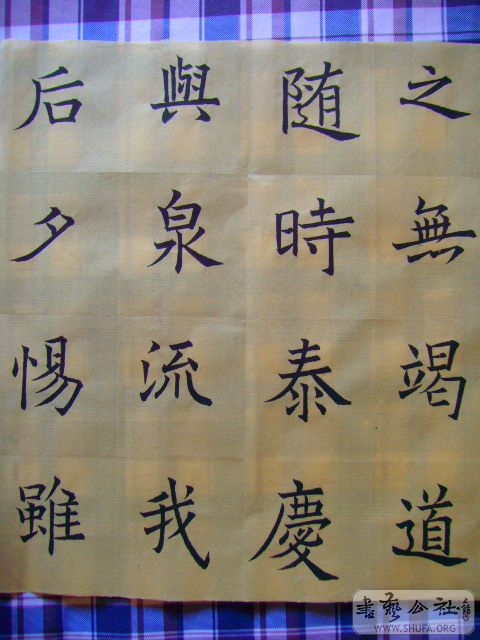 之無竭道
随時泰慶
與泉流我
后夕惕雖
書藝公社
WWW.SHUFA.ORG